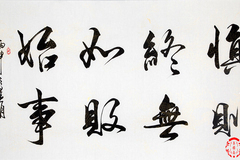 慎終如始
則無敗事